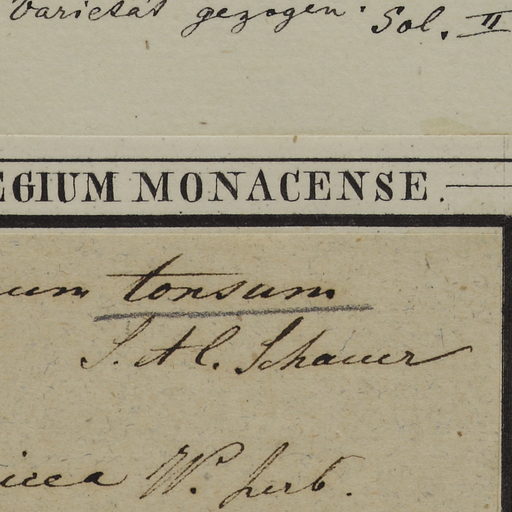 Varietät gezogen. Sol. II
EGIUM MONACENSE.
um tonsum
Schauer
W. herb.